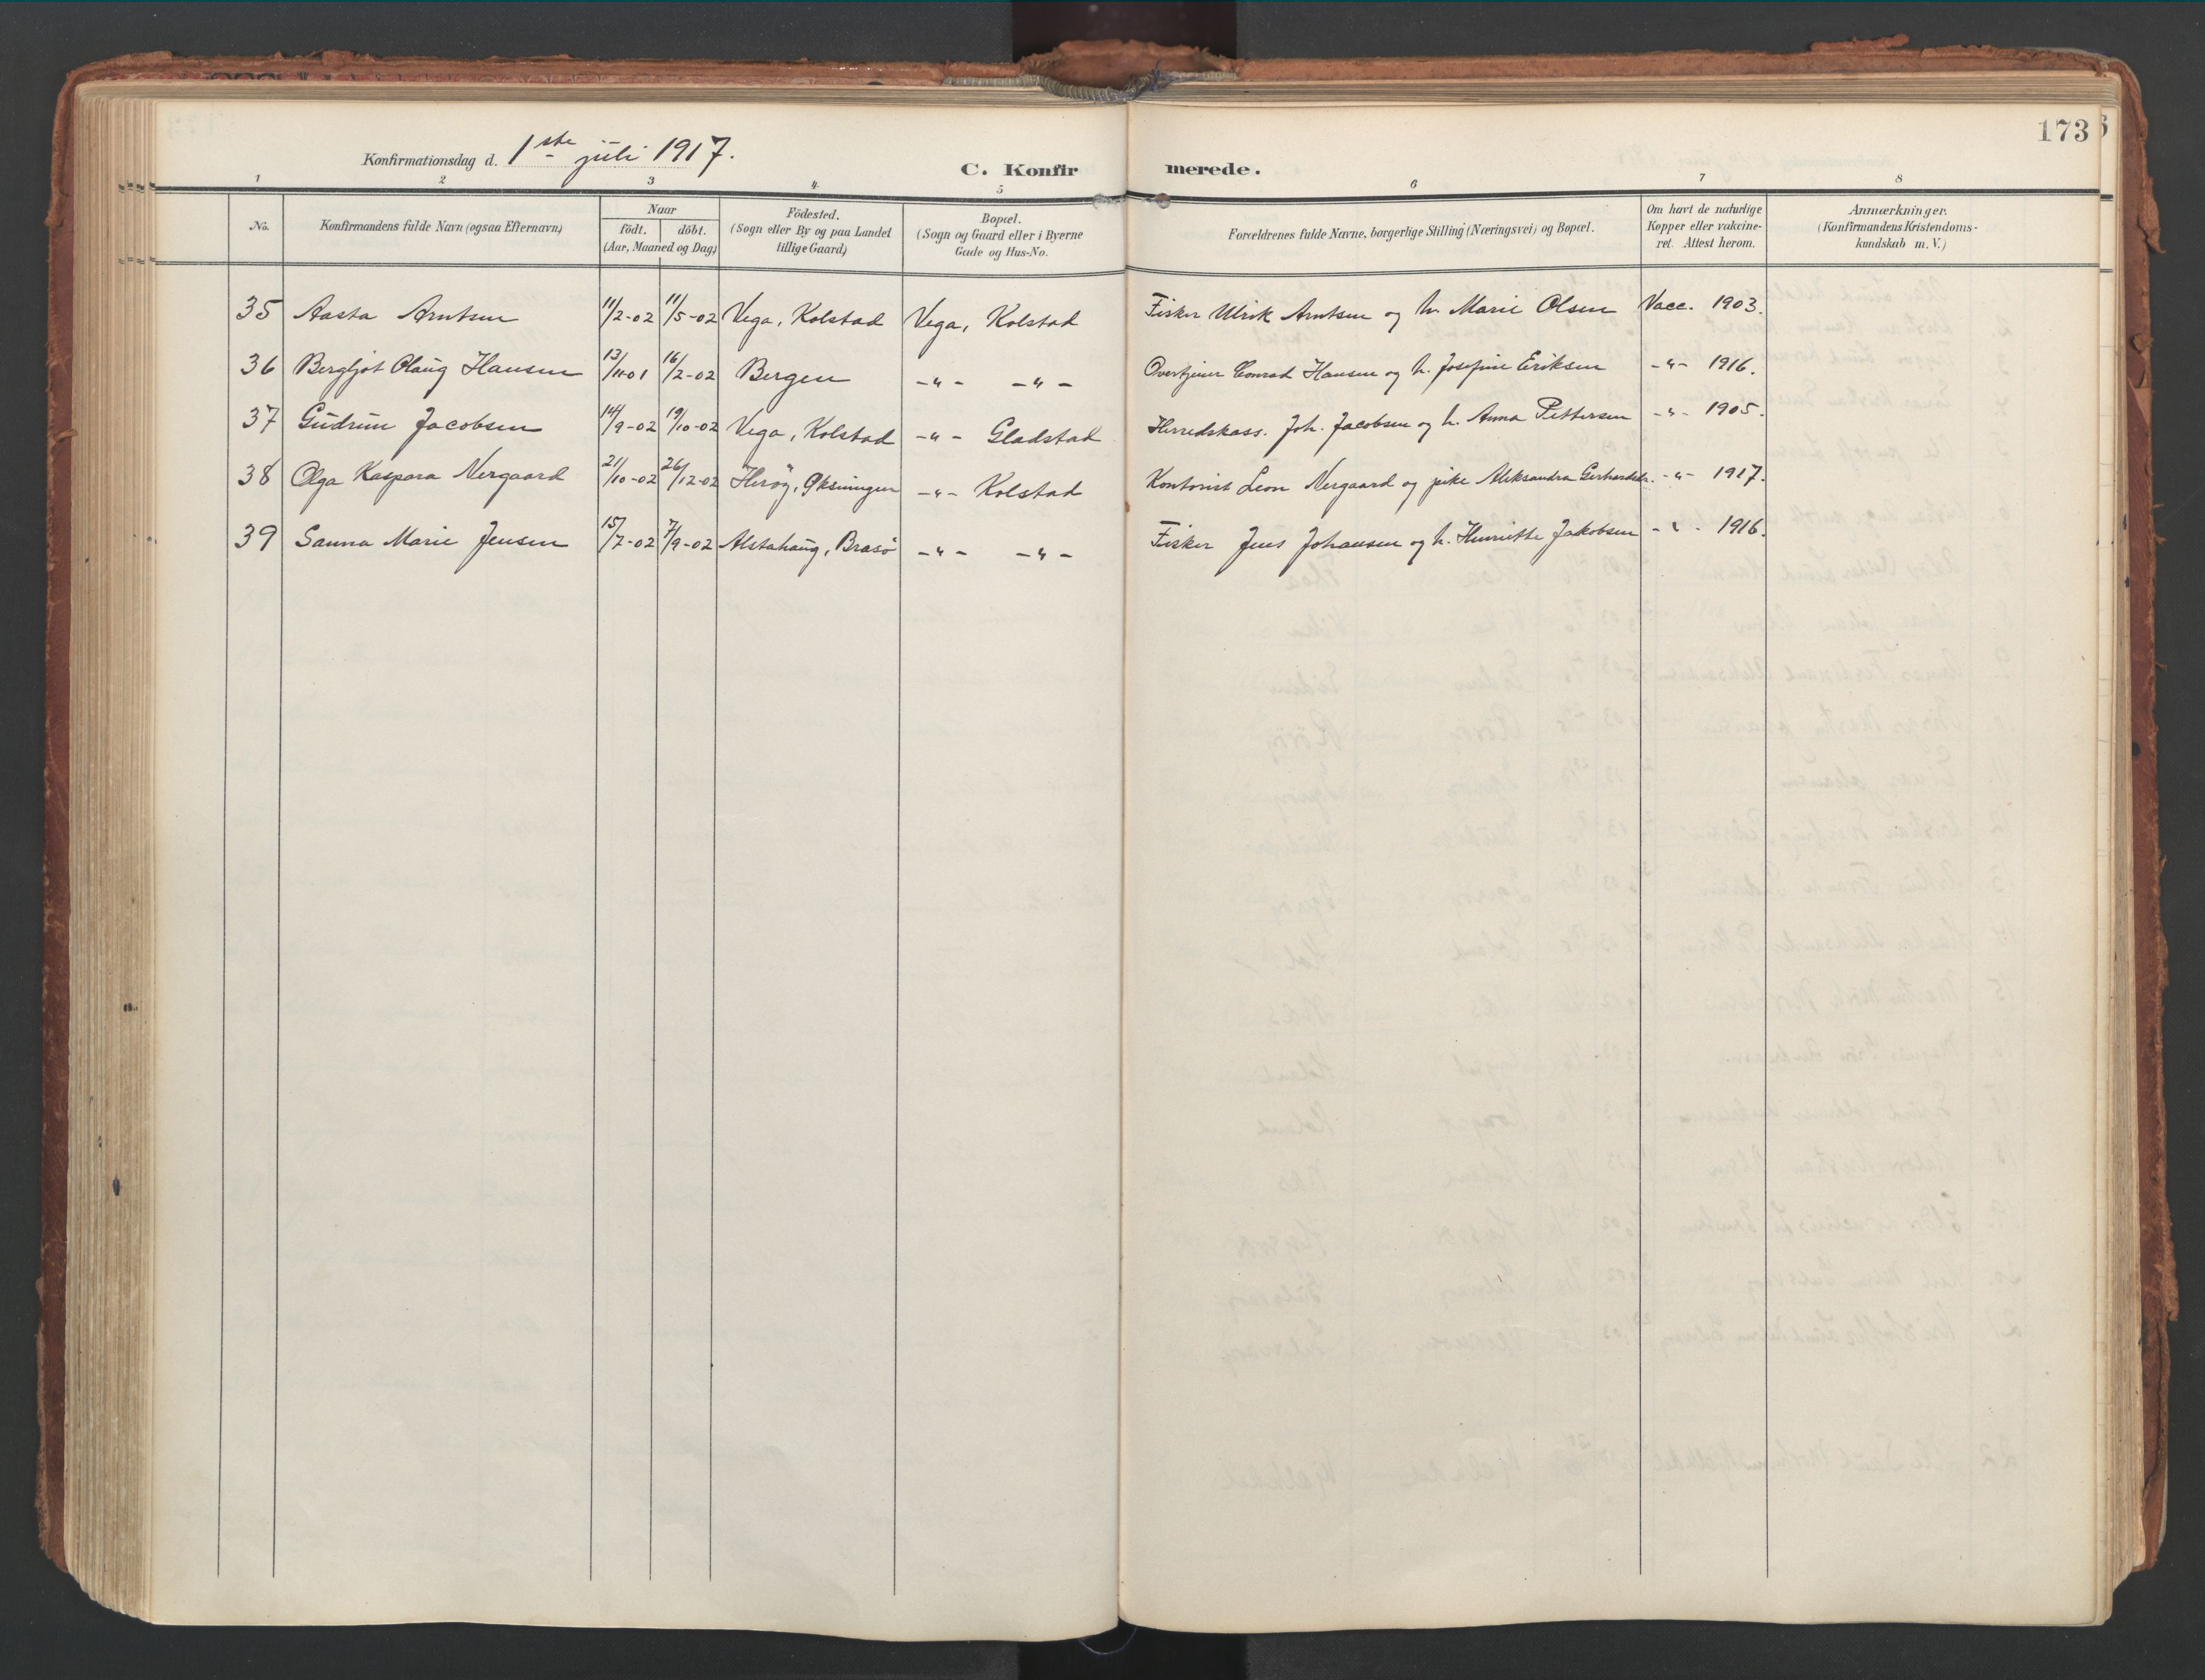 173
Konfirmationsdag d. 1ste juli 1917.
C. Konfirmerede.
1 2 3 4 5 6 7 8
No.
Konfirmandens fulde Navn (ogsaa Efternavn)
Naar
födt. döbt.
(Aar, Maaned og Dag)
Födested.
(Sogn eller By og paa Landet
tillige Gaard)
Bopæl.
(Sogn og Gaard eller i Byerne
Gade og Hus-No.
Forældrenes fulde Navne, borgerlige Stilling (Næringsvei) og Bopæl.
Om havt de naturlige
Kopper eller vakcine-
ret. Attest herom.
Anmærkninger.
(Konfirmandens Kristendoms-
kundskab m. V.)
35 Aasta Arntsen 11/2-02 11/5-02 Vega, Kolstad Vega, Kolstad Fisker Ulrik Arntsen og h. Marie Olsen Vacc. 1903.
36 Bergljot Olaug Hansen 13/11-01 16/2-02 Bergen -"- -"- Overtjener Conrad Hansen og h. Josefine Eriksen -"- 1916.
37 Gudrun Jacobsen 14/9-02 19/10-02 Vega, Kolstad -"- Gladstad Herredskass. Joh. Jacobsen og h. Anna Pettersen -"- 1905.
38 Olga Kaspara Nergaard 21/10-02 26/12-02 "Herøy", Øksningen -"- Kolstad Kontorist Leon Nergaard og pike Aleksandra Gerhardsdr. -"- 1917.
39 Sanna Marie Jensen 15/7-02 7/9-02 Alstahaug, Brasö -"- -"- Fisker Jens Johansen og h. Henriette Jakobsen -"- 1916.